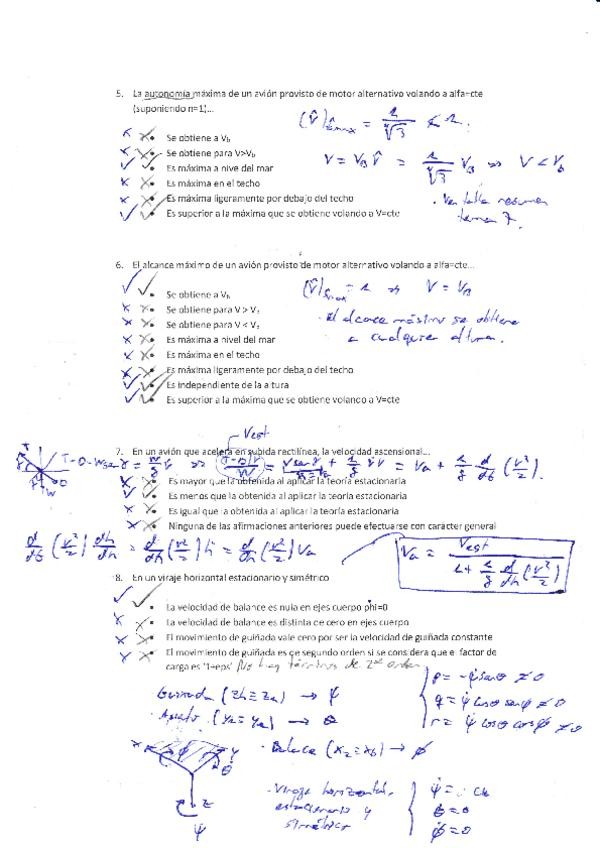 5. La autonomía máxima de un avión provisto de motor alternativo volando a alfa=cte
(suponiendo n=1)...
Se obtiene a Vb
Se obtiene para V>Vb
Es máxima a nivel del mar
Es máxima en el techo
Es máxima ligeramente por debajo del techo
Es superior a la máxima que se obtiene volando a V=cte
V = VB V̂ = 1/∜3 VB ⇒ V < Vb
· Ver tabla resumen
tema 7.
6. El alcance máximo de un avión provisto de motor alternativo volando a alfa=cte...
Se obtiene a Vb
Se obtiene para V > Vb
Se obtiene para V < Vb
Es máxima a nivel del mar
Es máxima en el techo
Es máxima ligeramente por debajo del techo
Es independiente de la altura
Es superior a la máxima que se obtiene volando a V=cte
V = VB
· El alcance máximo se obtiene
a cualquier altura.
Vest
7. En un avión que acelera en subida rectilínea, la velocidad ascensional...
Es mayor que la obtenida al aplicar la teoría estacionaria
Es menos que la obtenida al aplicar la teoría estacionaria
Es igual que la obtenida al aplicar la teoría estacionaria
Ninguna de las afirmaciones anteriores puede efectuarse con carácter general
d/dt (v²/2) dh/dh = d/dh (v²/2) ḣ = d/dh (v²/2) Va
Va = Vest / 1 + 1/g d/dh (v²/2)
8. En un viraje horizontal estacionario y simétrico
La velocidad de balance es nula en ejes cuerpo phi=0
La velocidad de balance es distinta de cero en ejes cuerpo
El movimiento de guiñada vale cero por ser la velocidad de guiñada constante
El movimiento de guiñada es de segundo orden si se considera que el factor de
carga es '1+eps' No hay términos de 2º orden
Guiñada (Zh ≡ Z1) → ψ
p = -ψ̇ senθ ≠ 0
q = ψ̇ cosθ senφ ≠ 0
r = ψ̇ cosθ cosφ ≠ 0
· Balance (X2 ≡ Xb) → φ
X Y θ
Z
ψ
· Viraje horizontal
estacionario y
simétrico
θ̇ = 0
φ̇ = 0